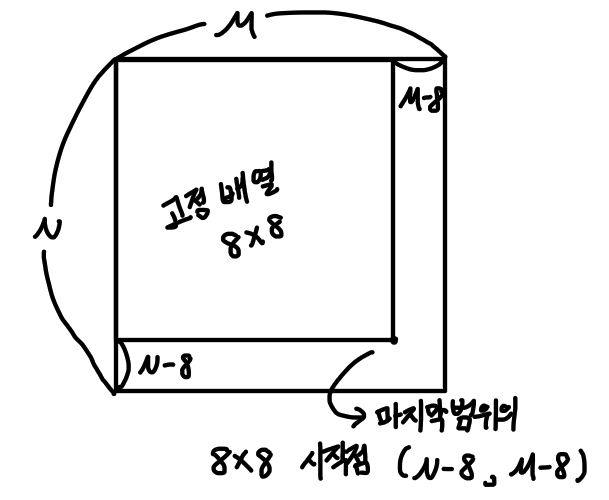 M
M-8
고정 배열
8×8
N
N-8
마지막범위의
8×8 시작점 (N-8, M-8)